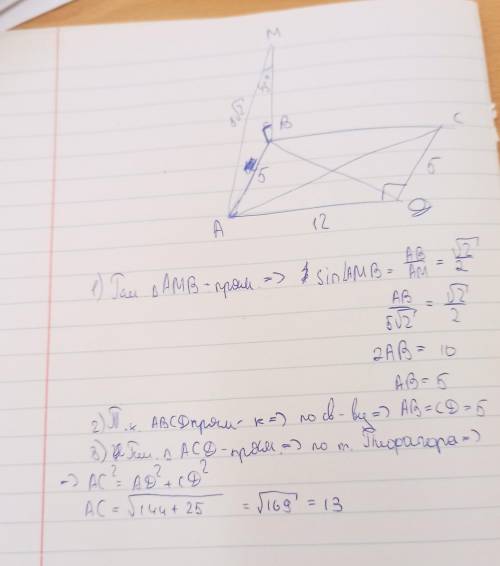 M
5√2
B
C
5
5
A
12
D
1) Так △AMB - прям. => sin∠AMB = AB/AM = √2/2
AB/5√2 = √2/2
2AB = 10
AB = 5
2) Т.к ABCD прям-к => по св-ву => AB = CD = 5
3) Так △ACD - прям. => по т. Пифагора =>
=> AC² = AD² + CD²
AC = √144 + 25 = √169 = 13